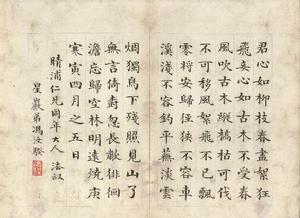 君心如柳枝春盡絮狂
飛妾心如古木歲晚
風吹古木縱槁枯可伐
不可移風絮飛不已飄
零將安歸徑狹不容車
溪淺不容釣平蕪淡雲
烟獨鳥下殘照見山了
無言倚樹忽長歗徘徊
澹忘歸空林明遠燒庚
寅四月之五日
晴浦仁兄同年大人法政
星巖弟馮汝騤